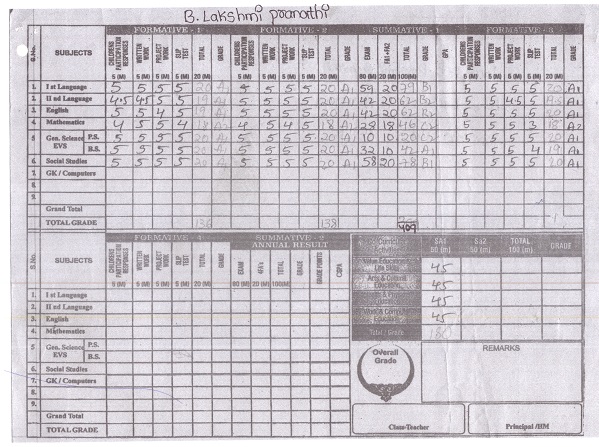 B. Lakshmi
FORMATIVE - 1 FORMATIVE - 2 SUMMATIVE - 1 FORMATIVE - 3
S.No. SUBJECTS CHILDRENS PARTICIPATION RESPONSES WRITTEN WORK PROJECT WORK SLIP TEST TOTAL GRADE CHILDRENS PARTICIPATION RESPONSES WRITTEN WORK PROJECT WORK SLIP TEST TOTAL GRADE EXAM FA1+FA2 TOTAL GRADE GPA CHILDRENS PARTICIPATION RESPONSES WRITTEN WORK PROJECT WORK SLIP TEST TOTAL GRADE
5 (M) 5 (M) 5 (M) 5 (M) 20 (M) 5 (M) 5 (M) 5 (M) 5 (M) 20 (M) 80 (M) 20 (M) 100(M) 5 (M) 5 (M) 5 (M) 5 (M) 20 (M)
1. I st Language 5 5 5 5 20 A1 5 5 5 5 20 A1 59 20 79 B1 5 5 5 5 20 A1
2. II nd Language 4.5 4.5 5 5 19 A1 5 5 5 5 20 A1 42 20 62 5 5 4.5 5 A1
3. English 5 5 4 5 19 A1 5 5 5 5 20 A1 42 20 62 5 5 5 5 20 A1
4. Mathematics 4 5 5 4 18 A2 5 4 5 18 28 18 46 5 5 5 3 18 A2
5 Gen. Science EVS P.S. 5 5 5 5 20 5 5 5 5 20 A1 10 10 20 5 5 5 5 20 A1
B.S. 5 5 5 5 20 5 5 5 5 20 A1 32 10 42 A1 5 5 5 4 19 A1
6. Social Studies 5 5 5 5 20 5 5 5 5 20 A1 58 20 78 B1 5 5 5 5 20 A1
7. GK / Computers
8.
9.
Grand Total
TOTAL GRADE 136 138 409
FORMATIVE - 4 SUMMATIVE - 2 ANNUAL RESULT
S.No. SUBJECTS CHILDRENS PARTICIPATION RESPONSES WRITTEN WORK PROJECT WORK SLIP TEST TOTAL GRADE EXAM TOTAL GRADE GRADE POINTS CGPA
5 (M) 5 (M) 5 (M) 5 (M) 20 (M) 80 (M) 20 (M) 100(M)
SA1 Sa2 50 (m) TOTAL 100 (m) GRADE
Value Education Life Skills 45
Arts & Cultural Education 45
45
45
Total / Grade 180
1. I st Language
2. II nd Language
3. English
4. Mathematics
5 Gen. Science EVS P.S.
B.S.
6. Social Studies
7. GK / Computers
8.
9.
Grand Total
TOTAL GRADE
Overall Grade
REMARKS
Class-Teacher Principal /HM